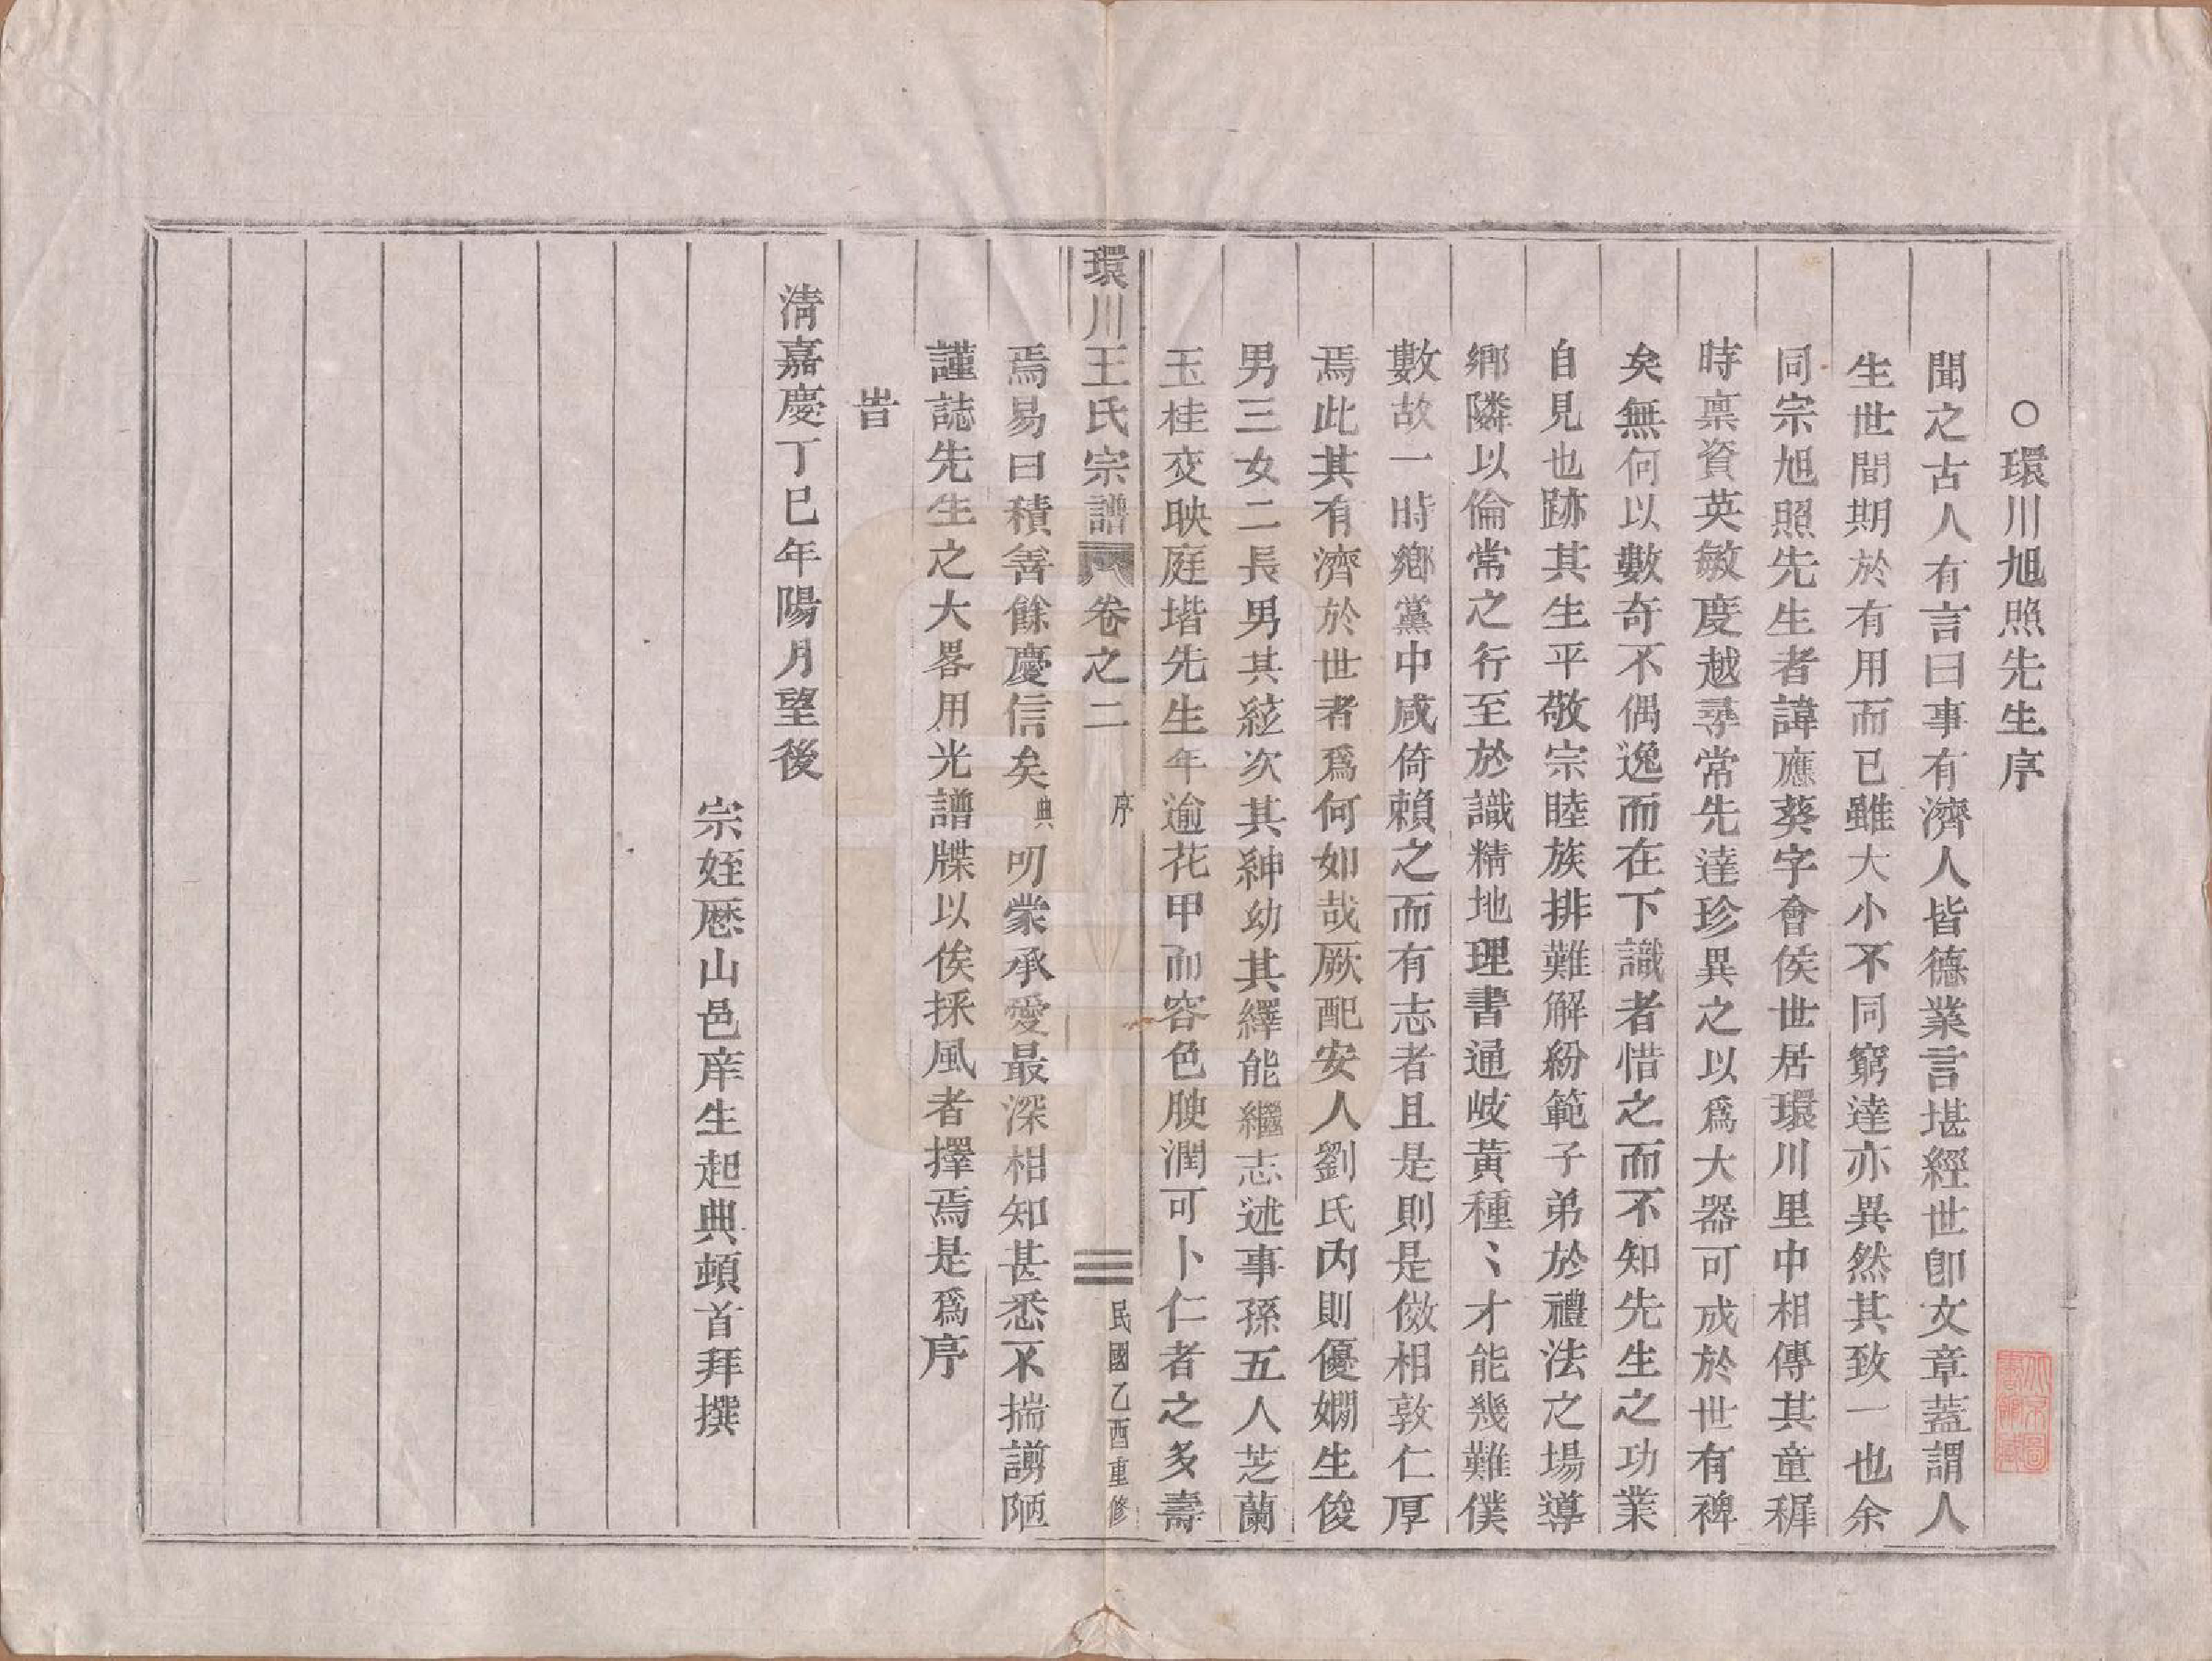 ○環川旭照先生序
聞之古人有言曰事有濟人皆德業言堪經世卽文章蓋謂人
生世間期於有用而已雖大小不同窮達亦異然其致一也余
同宗旭照先生者諱應葵字會侯世居環川里中相傳其童穉
時禀資英敏度越尋常先達珍異之以爲大器可成於世有裨
矣無何以數奇不偶逸而在下識者惜之而不知先生之功業
自見也跡其生平敬宗睦族排難解紛範子弟於禮法之場導
鄉隣以倫常之行至於識精地理書通岐黃種〻才能幾難僕
數故一時鄉黨中咸倚賴之而有志者且是則是傚相敦仁厚
焉此其有濟於世者爲何如哉厥配安人劉氏內則優嫻生俊
男三女二長男其絃次其紳幼其繹能繼志述事孫五人芝蘭
玉桂交映庭堦先生年逾花甲而容色腴潤可卜仁者之多壽
環川王氏宗譜 卷之二 序 三 民國乙酉重修
焉易曰積善餘慶信矣典叨蒙承愛最深相知甚悉不揣謭陋
謹誌先生之大畧用光譜牒以俟採風者擇焉是爲序
旹
清嘉慶丁巳年陽月望後
宗姪厯山邑庠生起典頓首拜撰